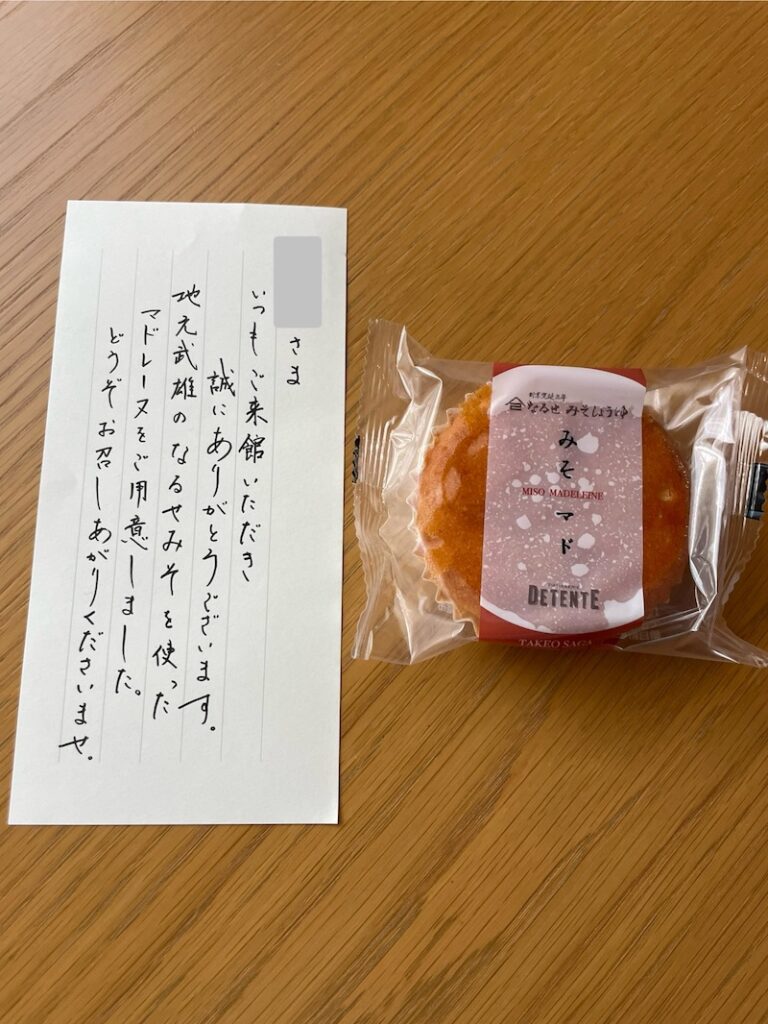 さま
いつもご来館いただき
誠にありがとうございます。
地元武雄のなるせみそを使った
マドレーヌをご用意しました。
どうぞお召しあがりくださいませ。
なるせ みそしょうゆ
みそマド
MISO MADELEINE
DETENTE
TAKEO SAGA